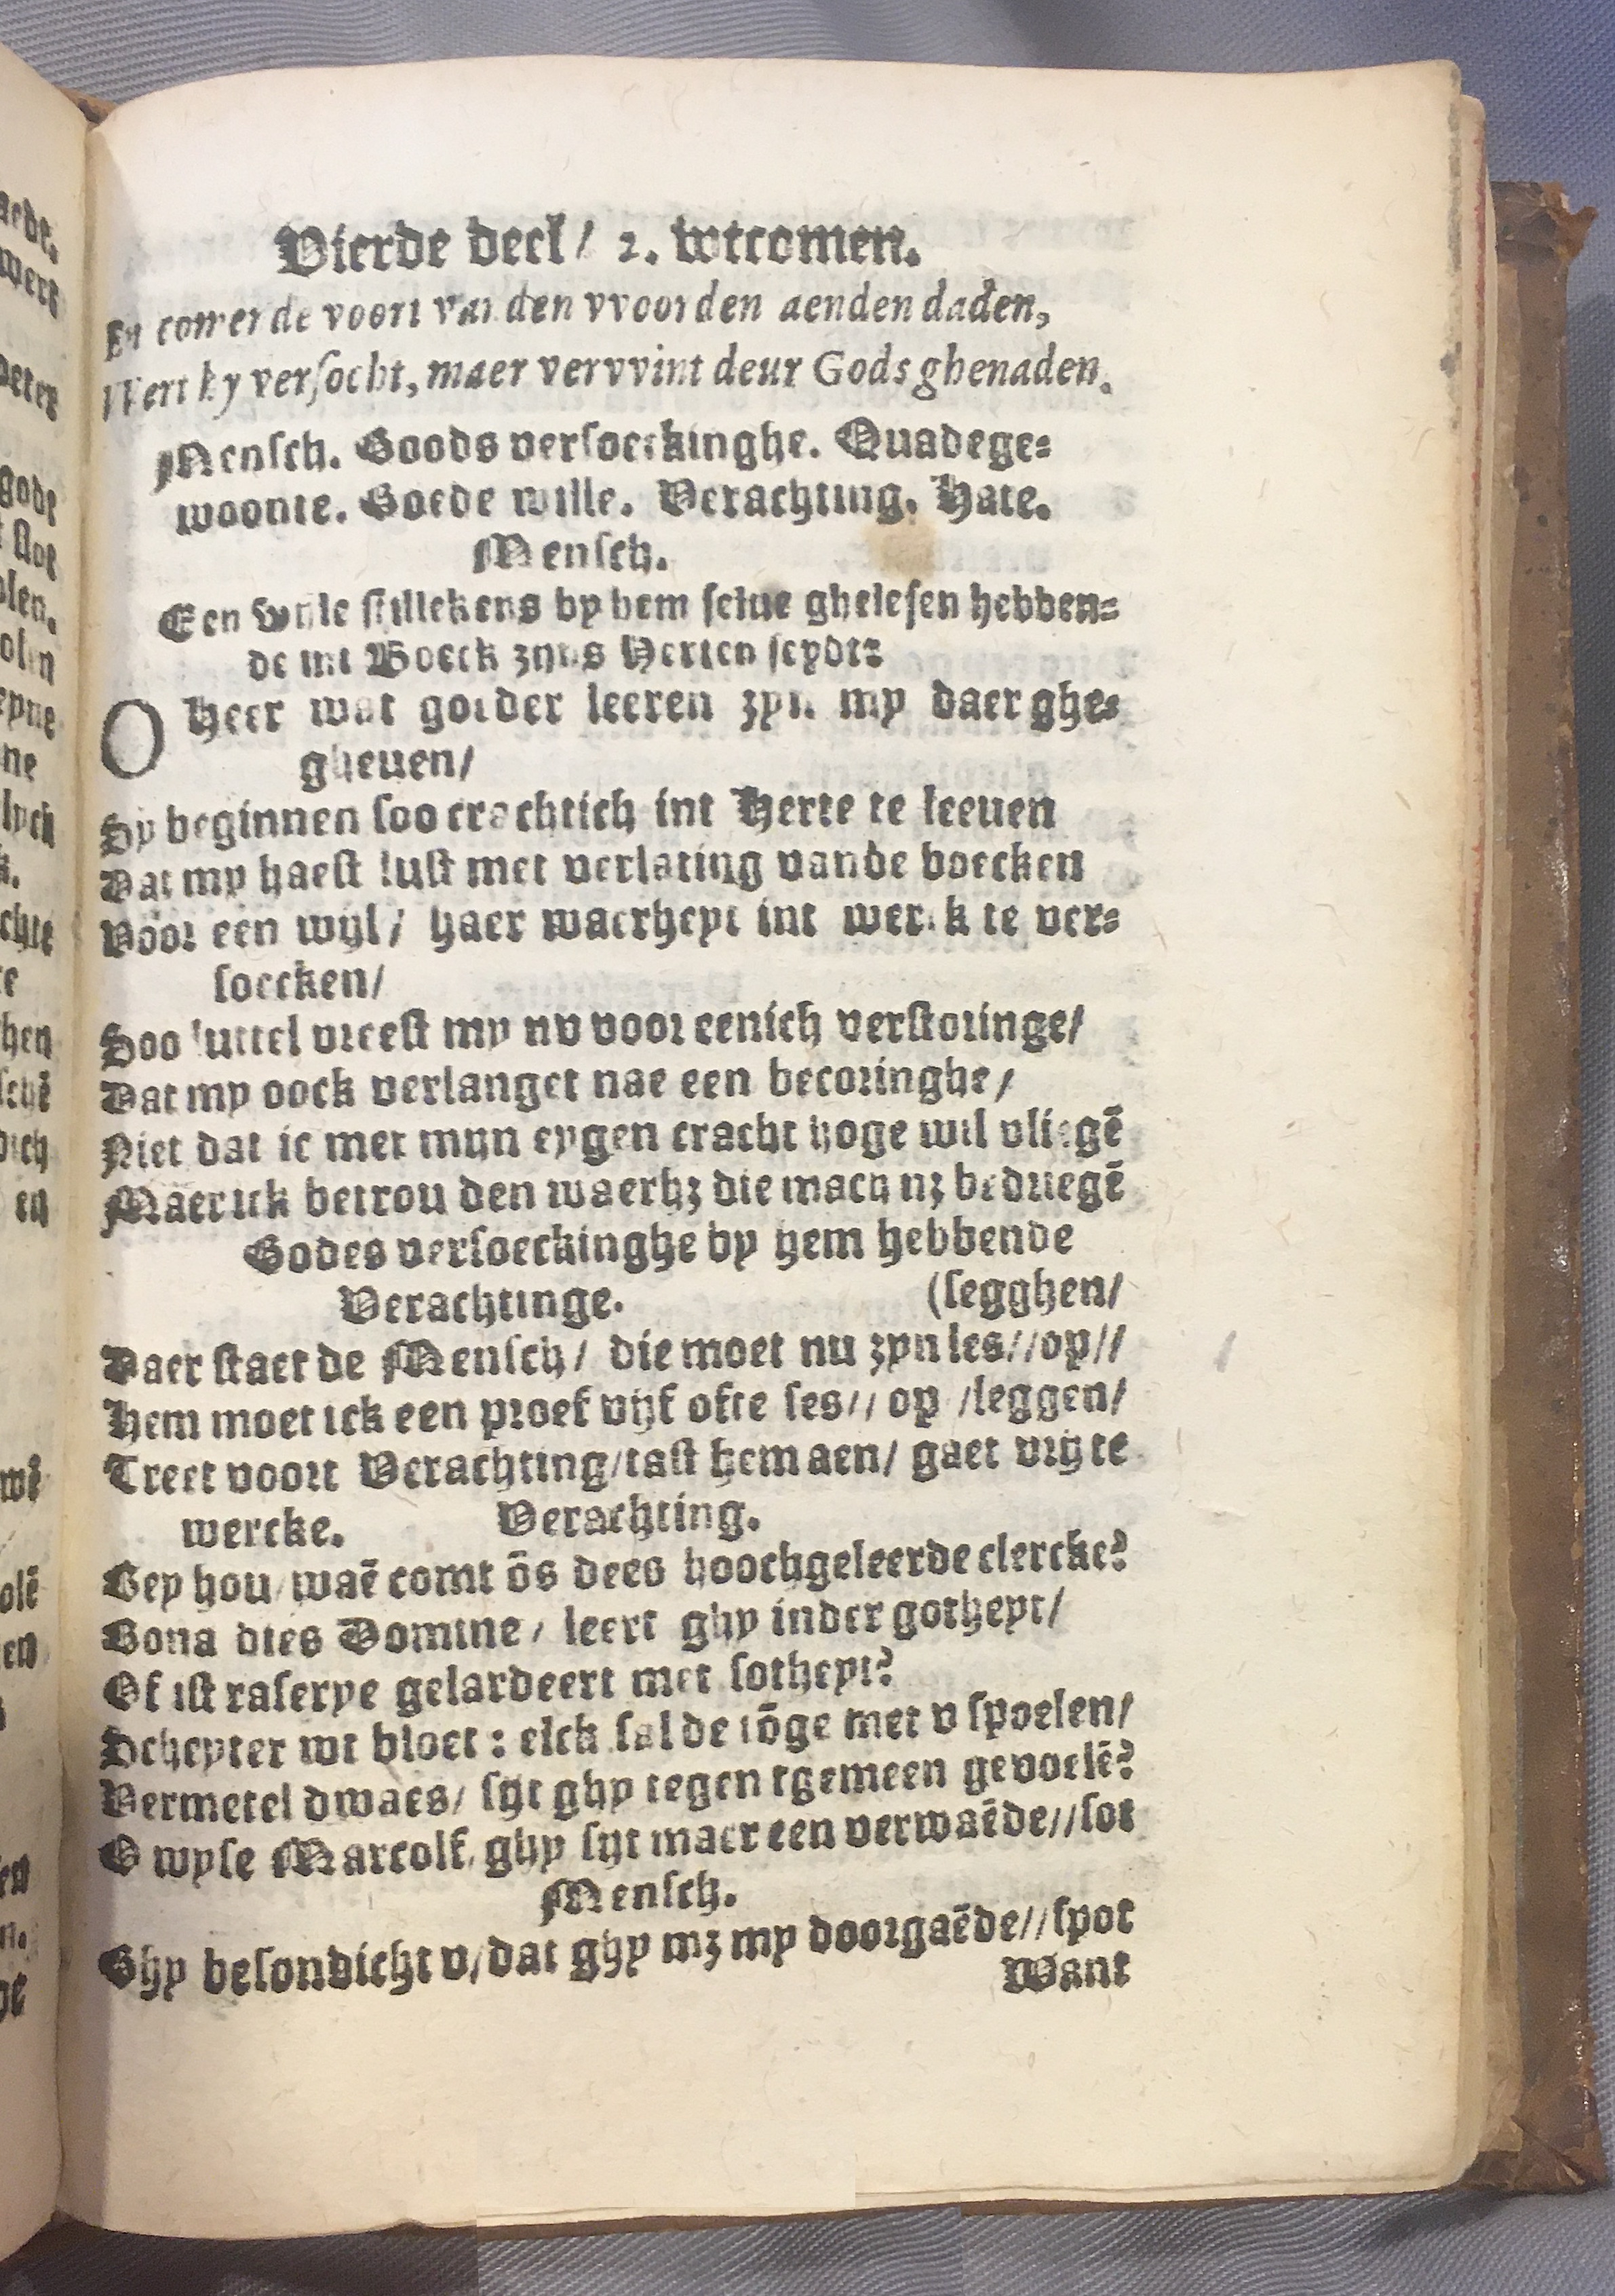 Vierde deel/ 2. wtcomen.
En comende voort van den vvoorden aenden daden,
Wert hy versocht, maer vervvint deur Gods ghenaden.
Mensch. Goods versoeckinghe. Quadege=
woonte. Goede wille. Verachting. Hate.
Mensch.
Een wijle stillekens by hem selue ghelesen hebben=
de int Boeck zijns Herten seydt:
O Heer wat goeder leeren zyn my daer ghe=
gheuen/
Sy beginnen soo crachtich int Herte te leeuen
Dat my haest lust met verlating vande boecken
Voor een wijl/ haer waerheyt int werck te ver=
soecken/
Soo luttel vreest my nv voor eenich verstoringe/
Dat my oock verlanget nae een becoringhe/
Niet dat ic met mijn eygen cracht hoge wil vliegē
Maer ick betrou den waerhz die mach nz bedriegē
Godes versoeckinghe by hem hebbende
Verachtinge. (segghen/
Daer staet de Mensch/ die moet nu zyn les//op//
Hem moet ick een proef vijf ofte ses// op /leggen/
Treet voort Verachting/tast hem aen/ gaet vrij te
wercke. Verachting.
Hey hou/waē comt ōs dees hoochgeleerde clercke?
Bona dies Domine/ leert ghy inder gotheyt/
Of ist raserye gelardeert met sotheyt?
Scheyter wt bloet: elck sal de tōge met v spoelen/
Vermetel dwaes/ sijt ghy tegen tgemeen gevoelē?
O wyse Marcolf, ghy sijt maer een verwaēde//sot
Mensch.
Ghy besondicht v/dat ghy mz my doorgaēde//spot
Want
aede.
wert
gode
slot
olen.
eyne
ne
lyck
k.
chte
hen
dich
en
wē
olē
en
en
n.
ge